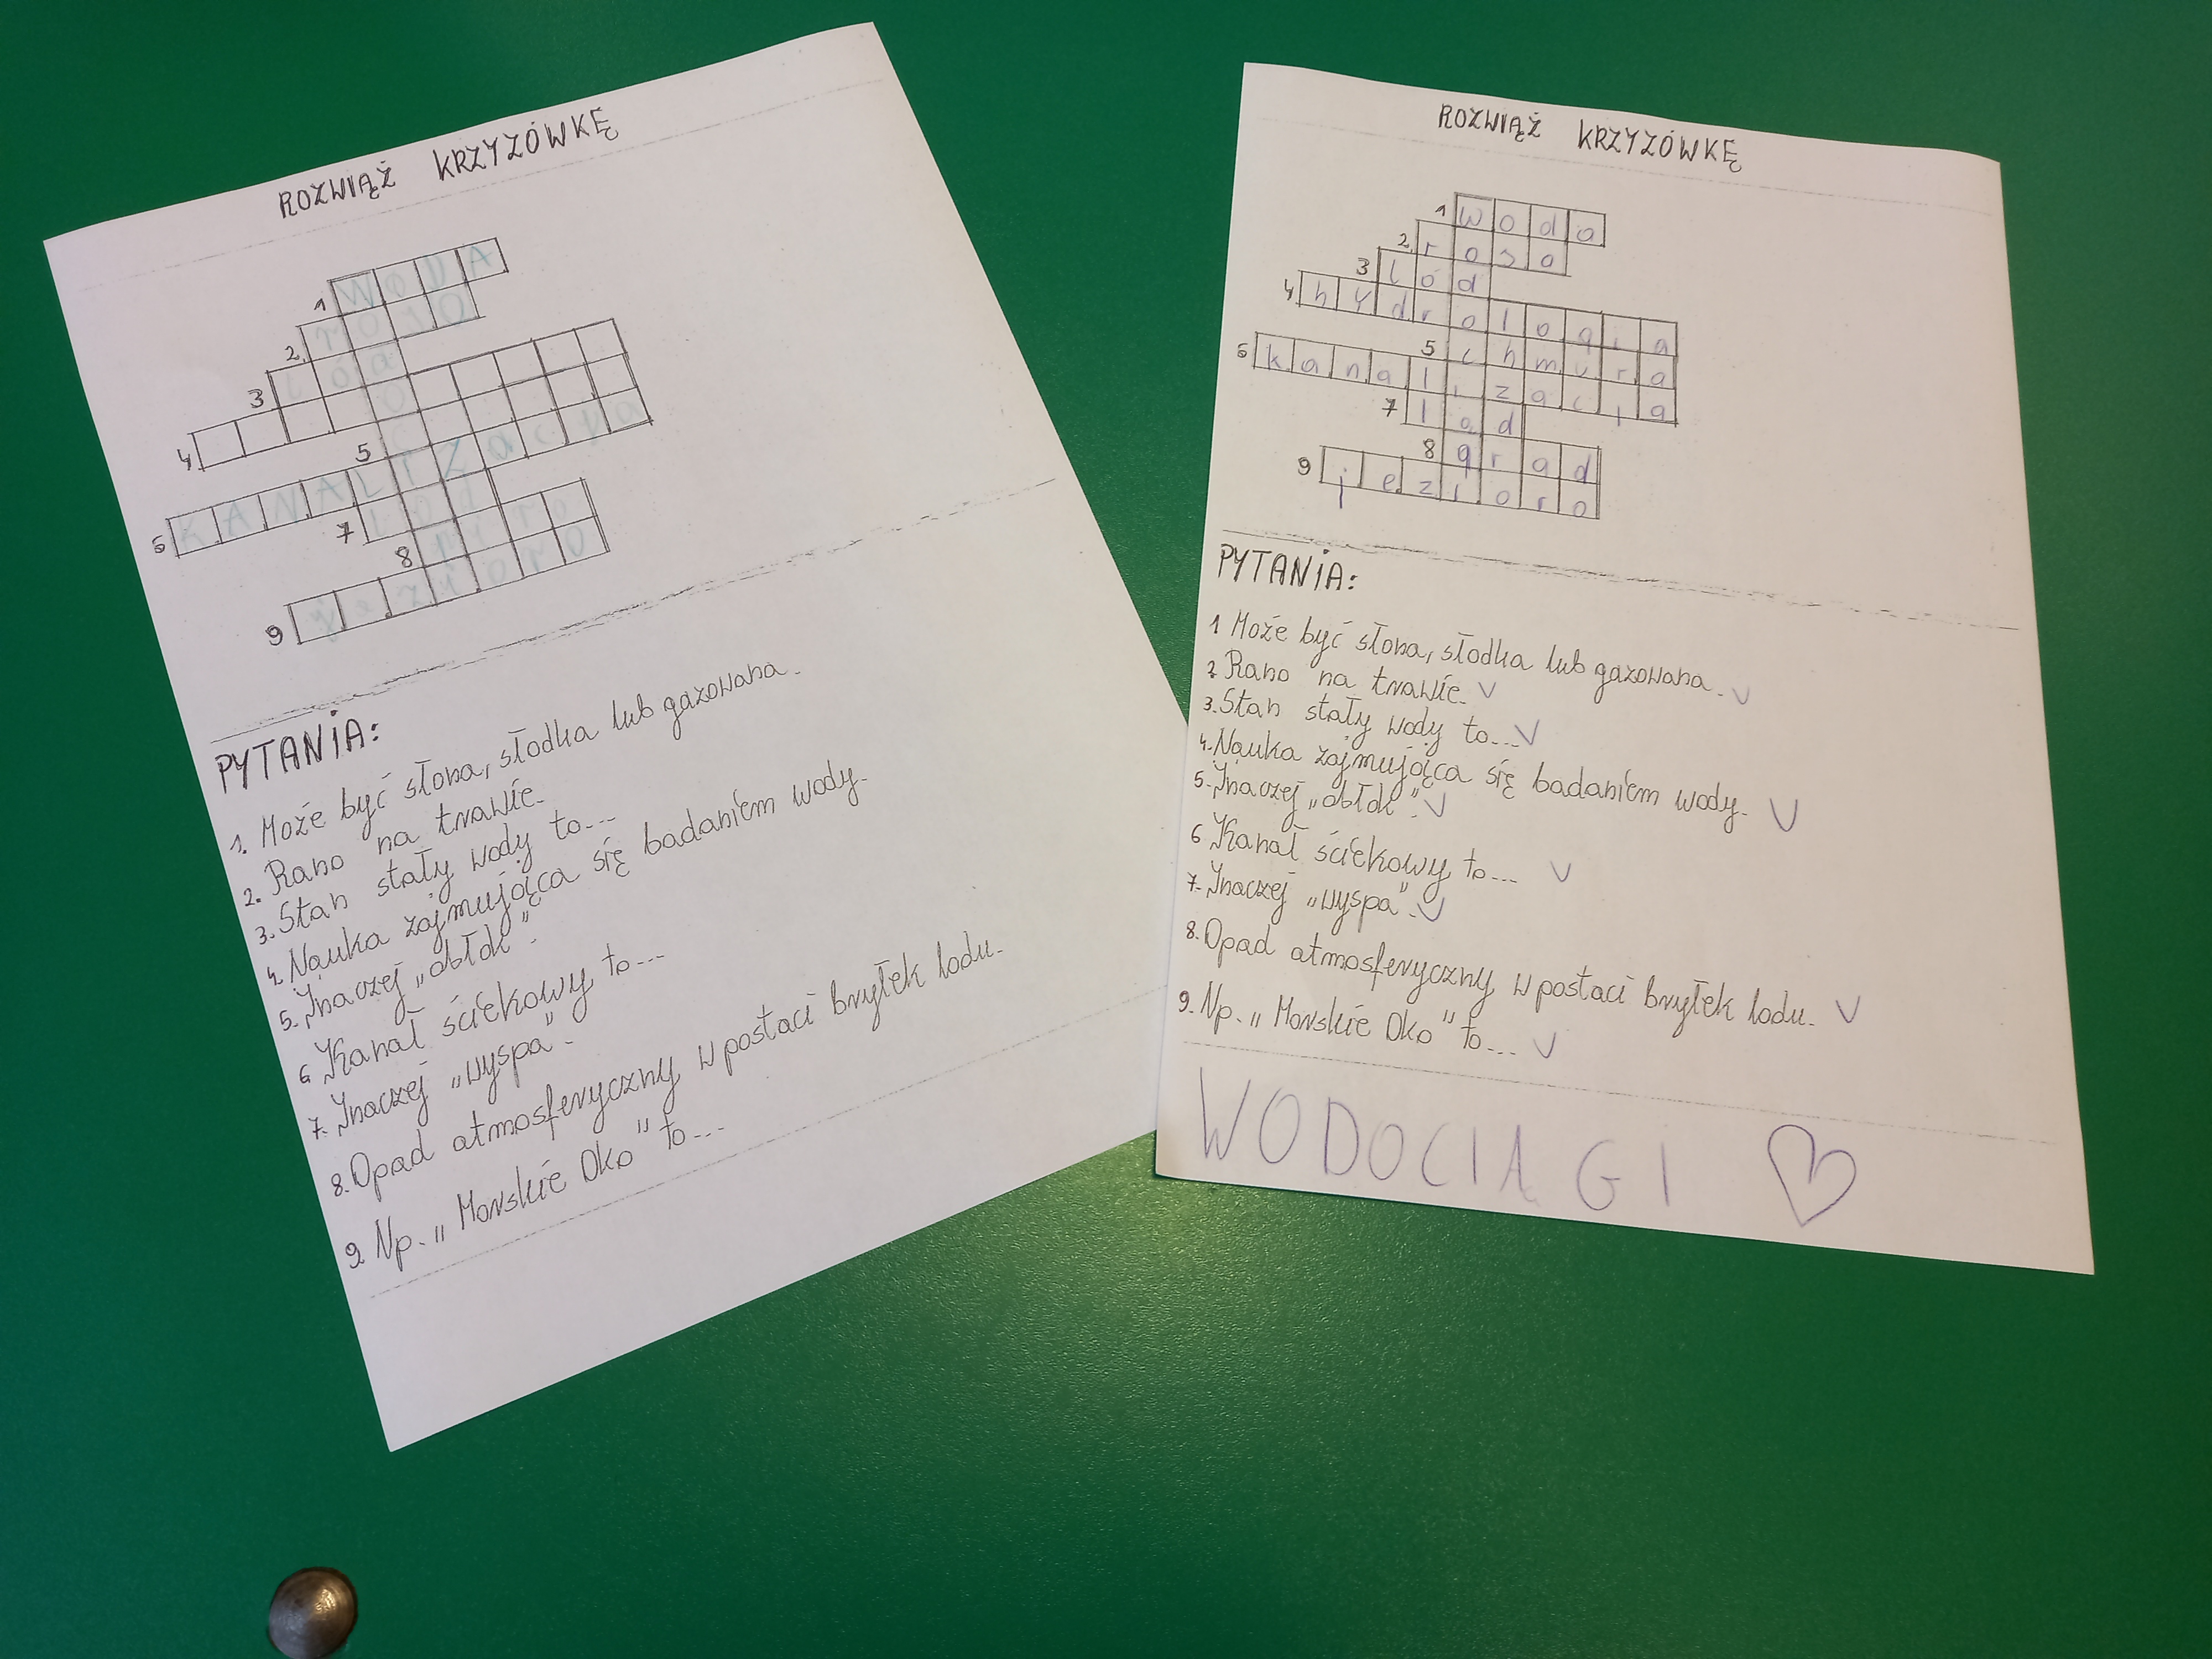 ROZWIĄŻ KRZYŻÓWKĘ
1 WODA
2. rosa
3 lód
4.
5
6 KANALIZacja
7 LąD
8
9 jezioro
PYTANIA:
1. Może być słona, słodka lub gazowana.
2. Rano na trawie.
3. Stan stały wody to...
4. Nauka zajmująca się badaniem wody.
5. Inaczej „obłok”.
6 Kanał ściekowy to...
7. Inaczej „wyspa”.
8. Opad atmosferyczny w postaci bryłek lodu.
9 Np. „Morskie Oko” to...
ROZWIĄŻ KRZYŻÓWKĘ
1 woda
2. rosa
3 lód
4 hydrologia
5 chmura
6 kanalizacja
7 ląd
8 grad
9 jezioro
PYTANIA:
1 Może być słona, słodka lub gazowana.
2. Rano na trawie.
3. Stan stały wody to...
4. Nauka zajmująca się badaniem wody.
5. Inaczej „obłok”.
6 Kanał ściekowy to...
7. Inaczej „wyspa”.
8. Opad atmosferyczny w postaci bryłek lodu.
9. Np. „Morskie Oko” to...
WODOCIĄGI